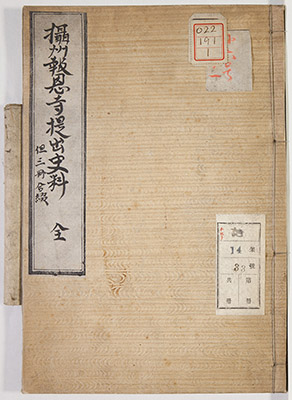 攝州報恩寺提出史料
但三冊合綴
全
022
191
1
14
33